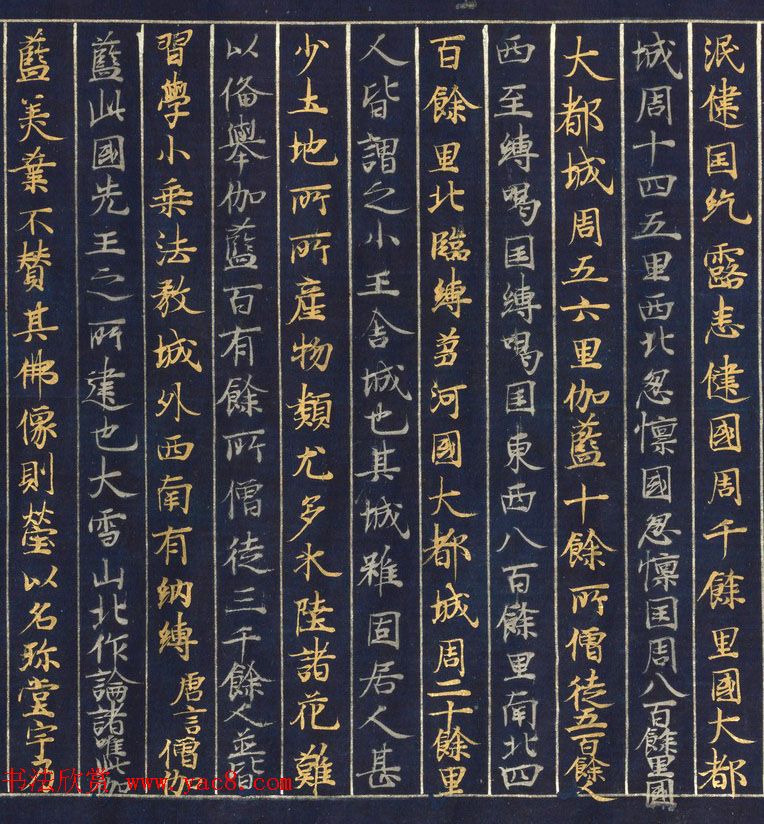 泯健国纥露悉健國周千餘里國大都
城周十四五里西北忽懍國忽懍国周八百餘里國
大都城周五六里伽藍十餘所僧徒五百餘人
西至縛喝国縛喝国東西八百餘里南北四
百餘里北臨縛芻河國大都城周二十餘里
人皆謂之小王舍城也其城雖固居人甚
少土地所所產物類尤多水陸諸花難
以俻舉伽藍百有餘所僧徒三千餘人並皆
習學小乘法教城外西南有納縛唐言僧伽
藍此國先王之所建也大雪山北作論諸唯此伽
藍美業不贊其佛像則瑩以名珎堂宇乃
书法欣赏 www.yac8.com